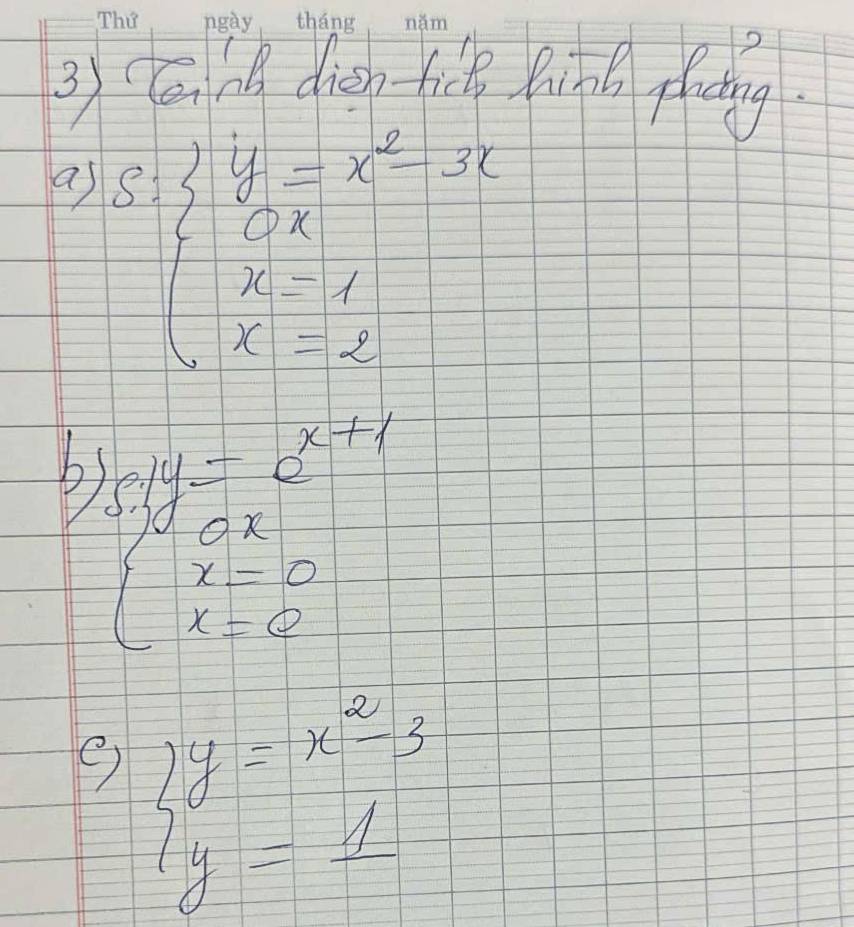 Thứ ngày tháng năm
3) Tính diện tích hình phẳng.
a) S: { y = x² - 3x
Ox
x = 1
x = 2
b) S: { y = e^{x+1}
Ox
x = 0
x = e
c) { y = x² - 3
y = 1